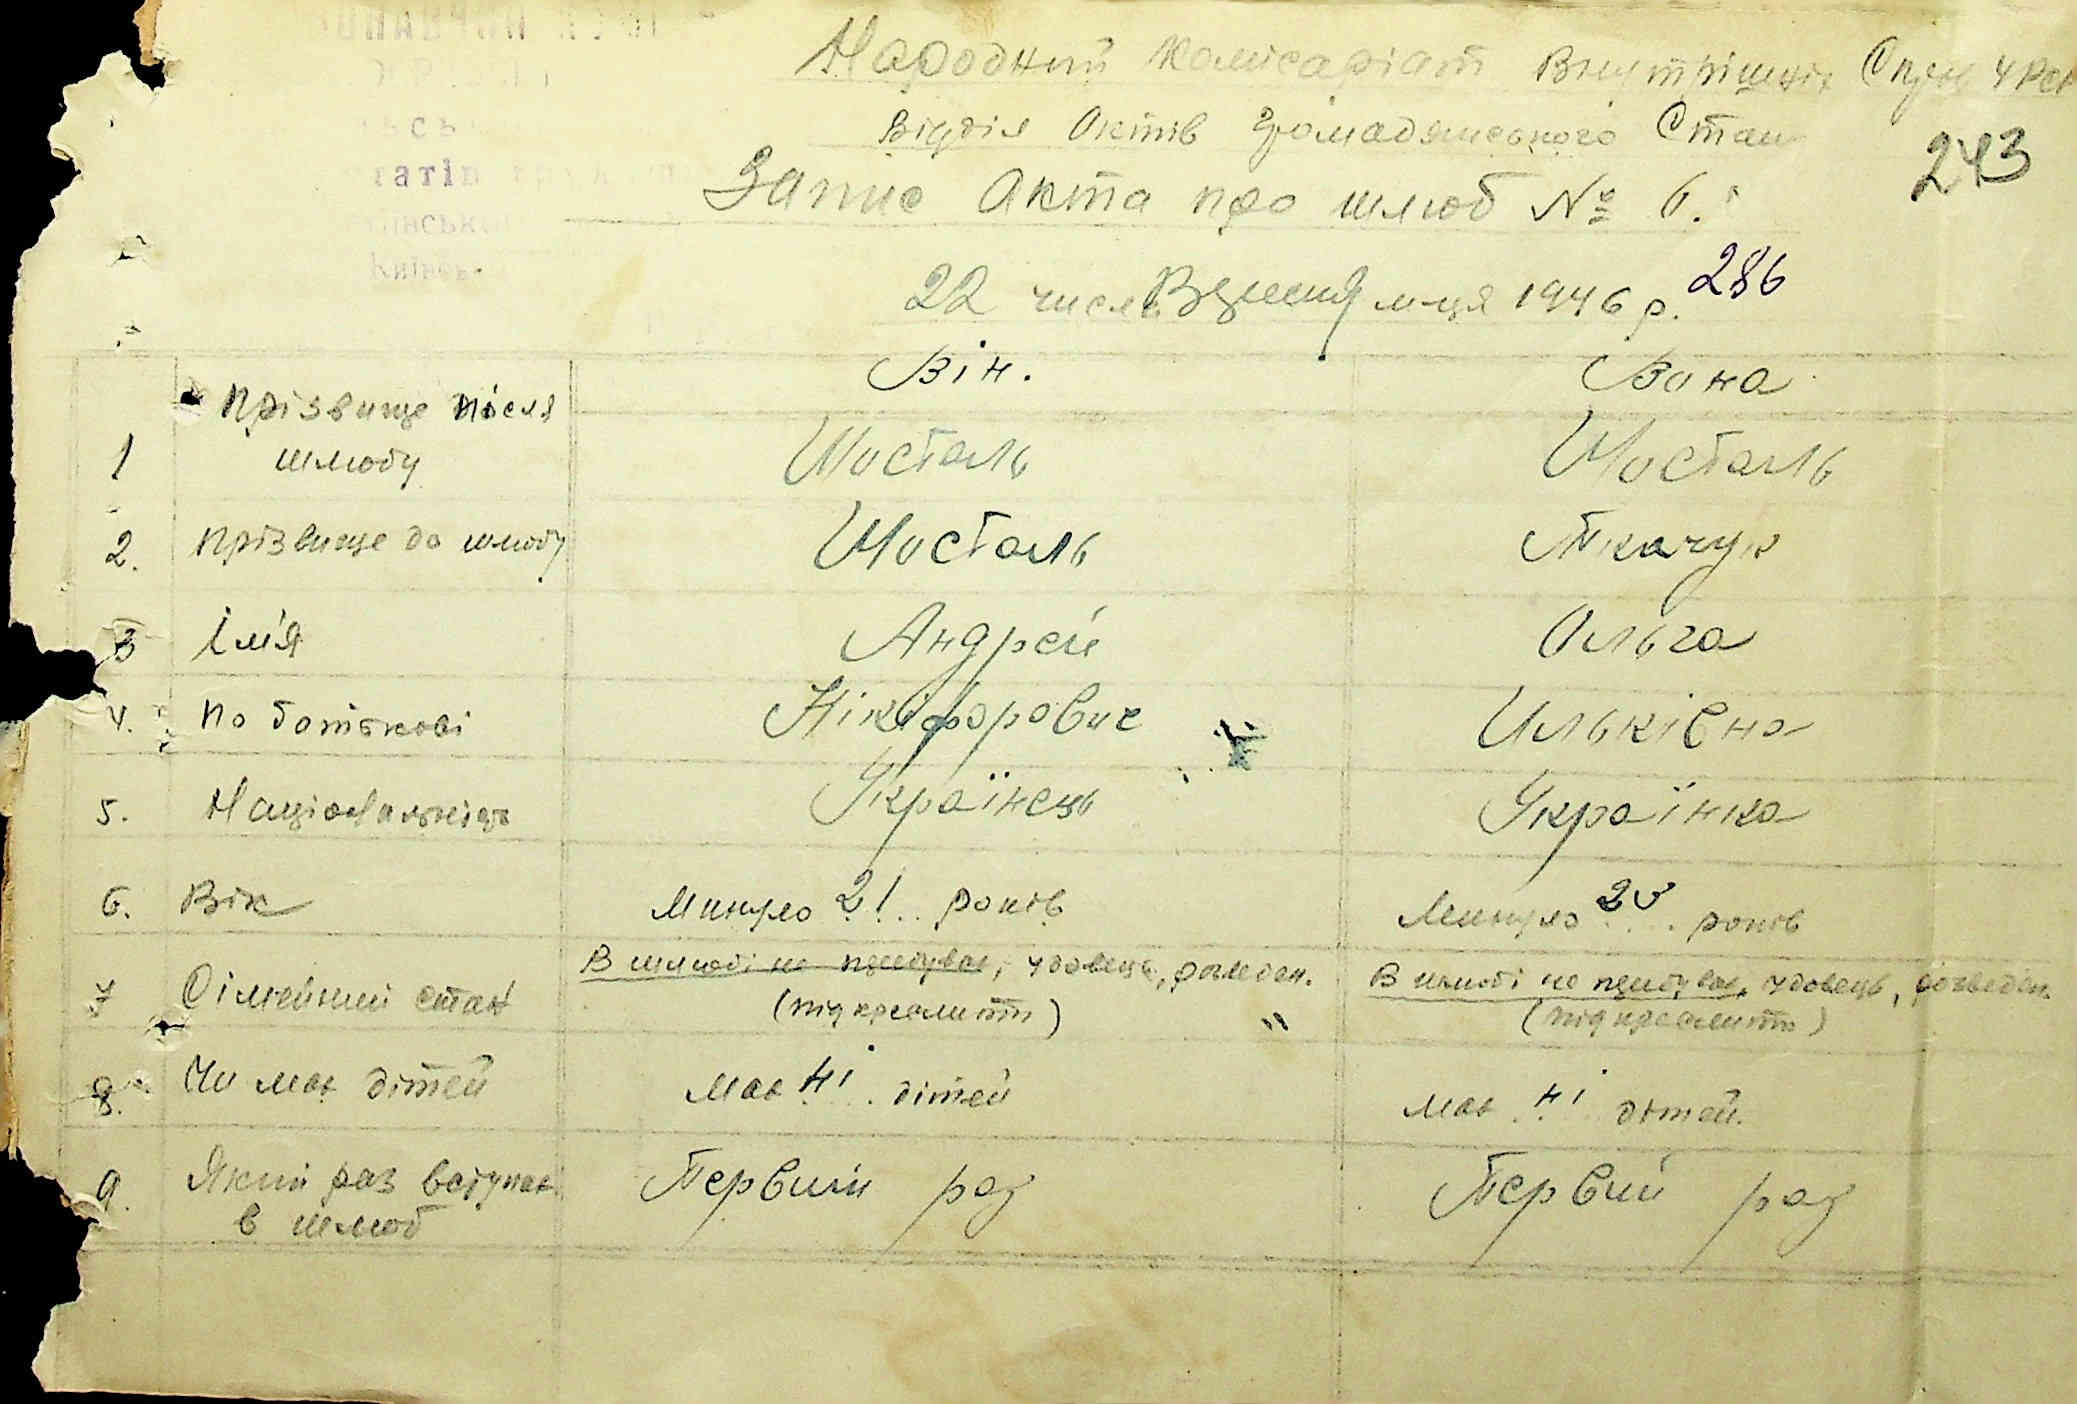 Народний Комісаріат Внутрішніх Справ УРСР
Відділ Актів Громадянського Стану
243
Запис Акта про шлюб № 6.
286
22 числа Вересня м-ця 1946 р.
Він. Вона
1 Прізвище після шлюбу Шосталь Шосталь
2. Прізвище до шлюбу Шосталь Ткачук
3 Ім'я Андрей Ольга
4. По батькові Нікіфорович Ильківна
5. Національність Українець Українка
6. Вік Минуло 21 . . років Минуло 20 . . років
В шлюбі не перебував, удовець, розведен. В шлюбі не перебував, удовець, розведен.
7 Сімейний стан (підкреслити) " (підкреслити)
8. Чи має дітей Має ні . дітей має ні дітей.
9. Який раз вступає Первий раз Первий раз
в шлюб